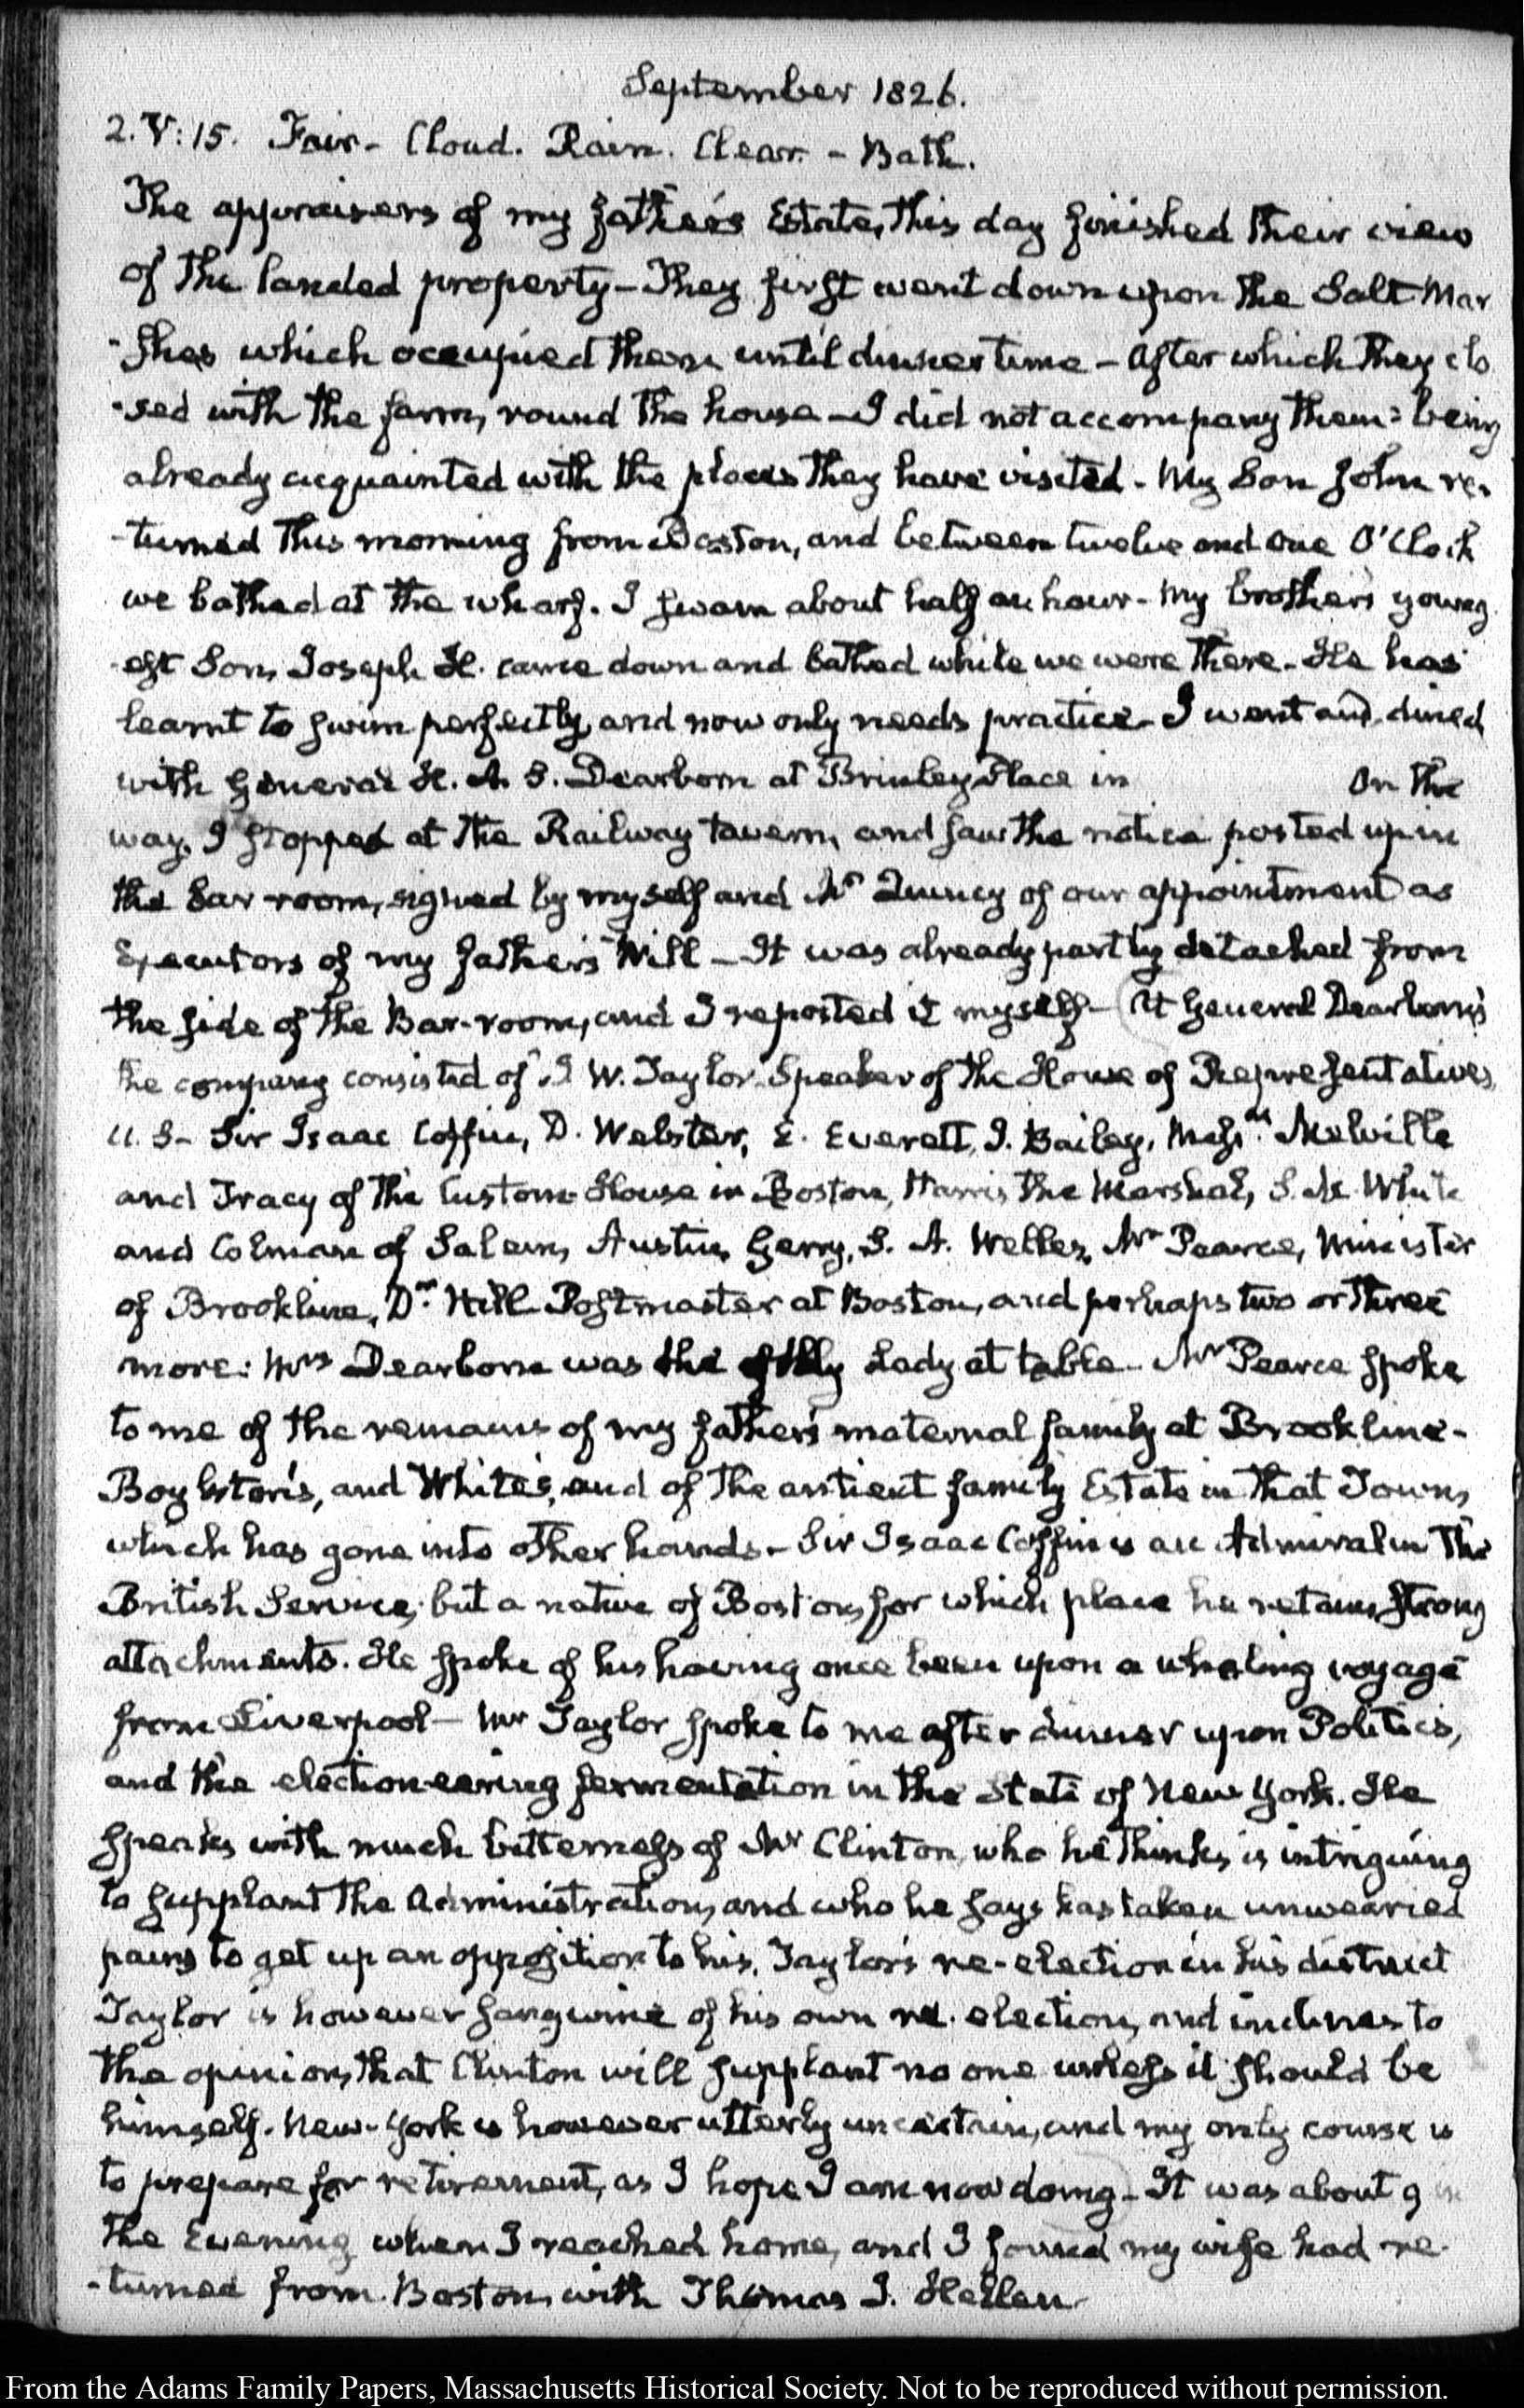 September 1826.
2. V:15. Fair - Cloud. Rain. Clear - Bath.
The appraisers of my father's Estate, this day finished their view
of the landed property - They first went down upon the Salt Mar
-shes which occupied them until dinner time - After which they clo
-sed with the farm, round the house - I did not accompany them: being
already acquainted with the places they have visited - My Son John re-
-turned this morning from Boston, and between twelve and one O'Clock
we bathed at the wharf. I swam about half an hour - My brother's young
-est Son, Joseph H. came down and bathed while we were there - He has
learnt to swim perfectly, and now only needs practice - I went and dined
with General H. A. S. Dearborn at Brinley Place in On the
way, I stopped at the Railway tavern, and saw the notice posted up in
the bar room, signed by myself and Mr Quincy of our appointment as
Executors of my father's Will - It was already partly detached from
the side of the Bar-room, and I reposted it myself - At General Dearborn's
the company consisted of J. W. Taylor Speaker of the House of Representatives
U.S - Sir Isaac Coffin, D. Webster, E. Everett, J. Bailey, Messrs. Melville
and Tracy of the Custom House in Boston, Harris the Marshal, S. White
and Colman of Salem, Austin, Gerry, S. A. Welles, Mr Pearce, Minister
of Brookline, Dr. Hill Postmaster at Boston, and perhaps two or three
more: Mrs Dearborn was the only Lady at table - Mr Pearce spoke
to me of the remains of my father's maternal family at Brookline -
Boylston's, and White's, and of the antient family Estate in that Town,
which has gone into other hands - Sir Isaac Coffin is an Admiral in the
British Service; but a native of Boston, for which place he retains strong
attachments. He spoke of his having once been upon a whaling voyage
from Liverpool - Mr Taylor spoke to me after dinner upon Politics,
and the electioneering fermentation in the State of New York. He
speaks with much bitterness of Mr Clinton, who he thinks is intriguing
to supplant the Administration, and who he says has taken unwearied
pains to get up an opposition to his, Taylor's re-election in his district
Taylor is however sanguine of his own re-election, and inclines to
the opinion, that Clinton will supplant no one unless it should be
himself. New-York is however utterly uncertain, and my only course is
to prepare for retirement, as I hope I am now doing - It was about 9 in
the Evening when I reached home, and I found my wife had re-
-turned from Boston, with Thomas J. Hellen.
From the Adams Family Papers, Massachusetts Historical Society. Not to be reproduced without permission.